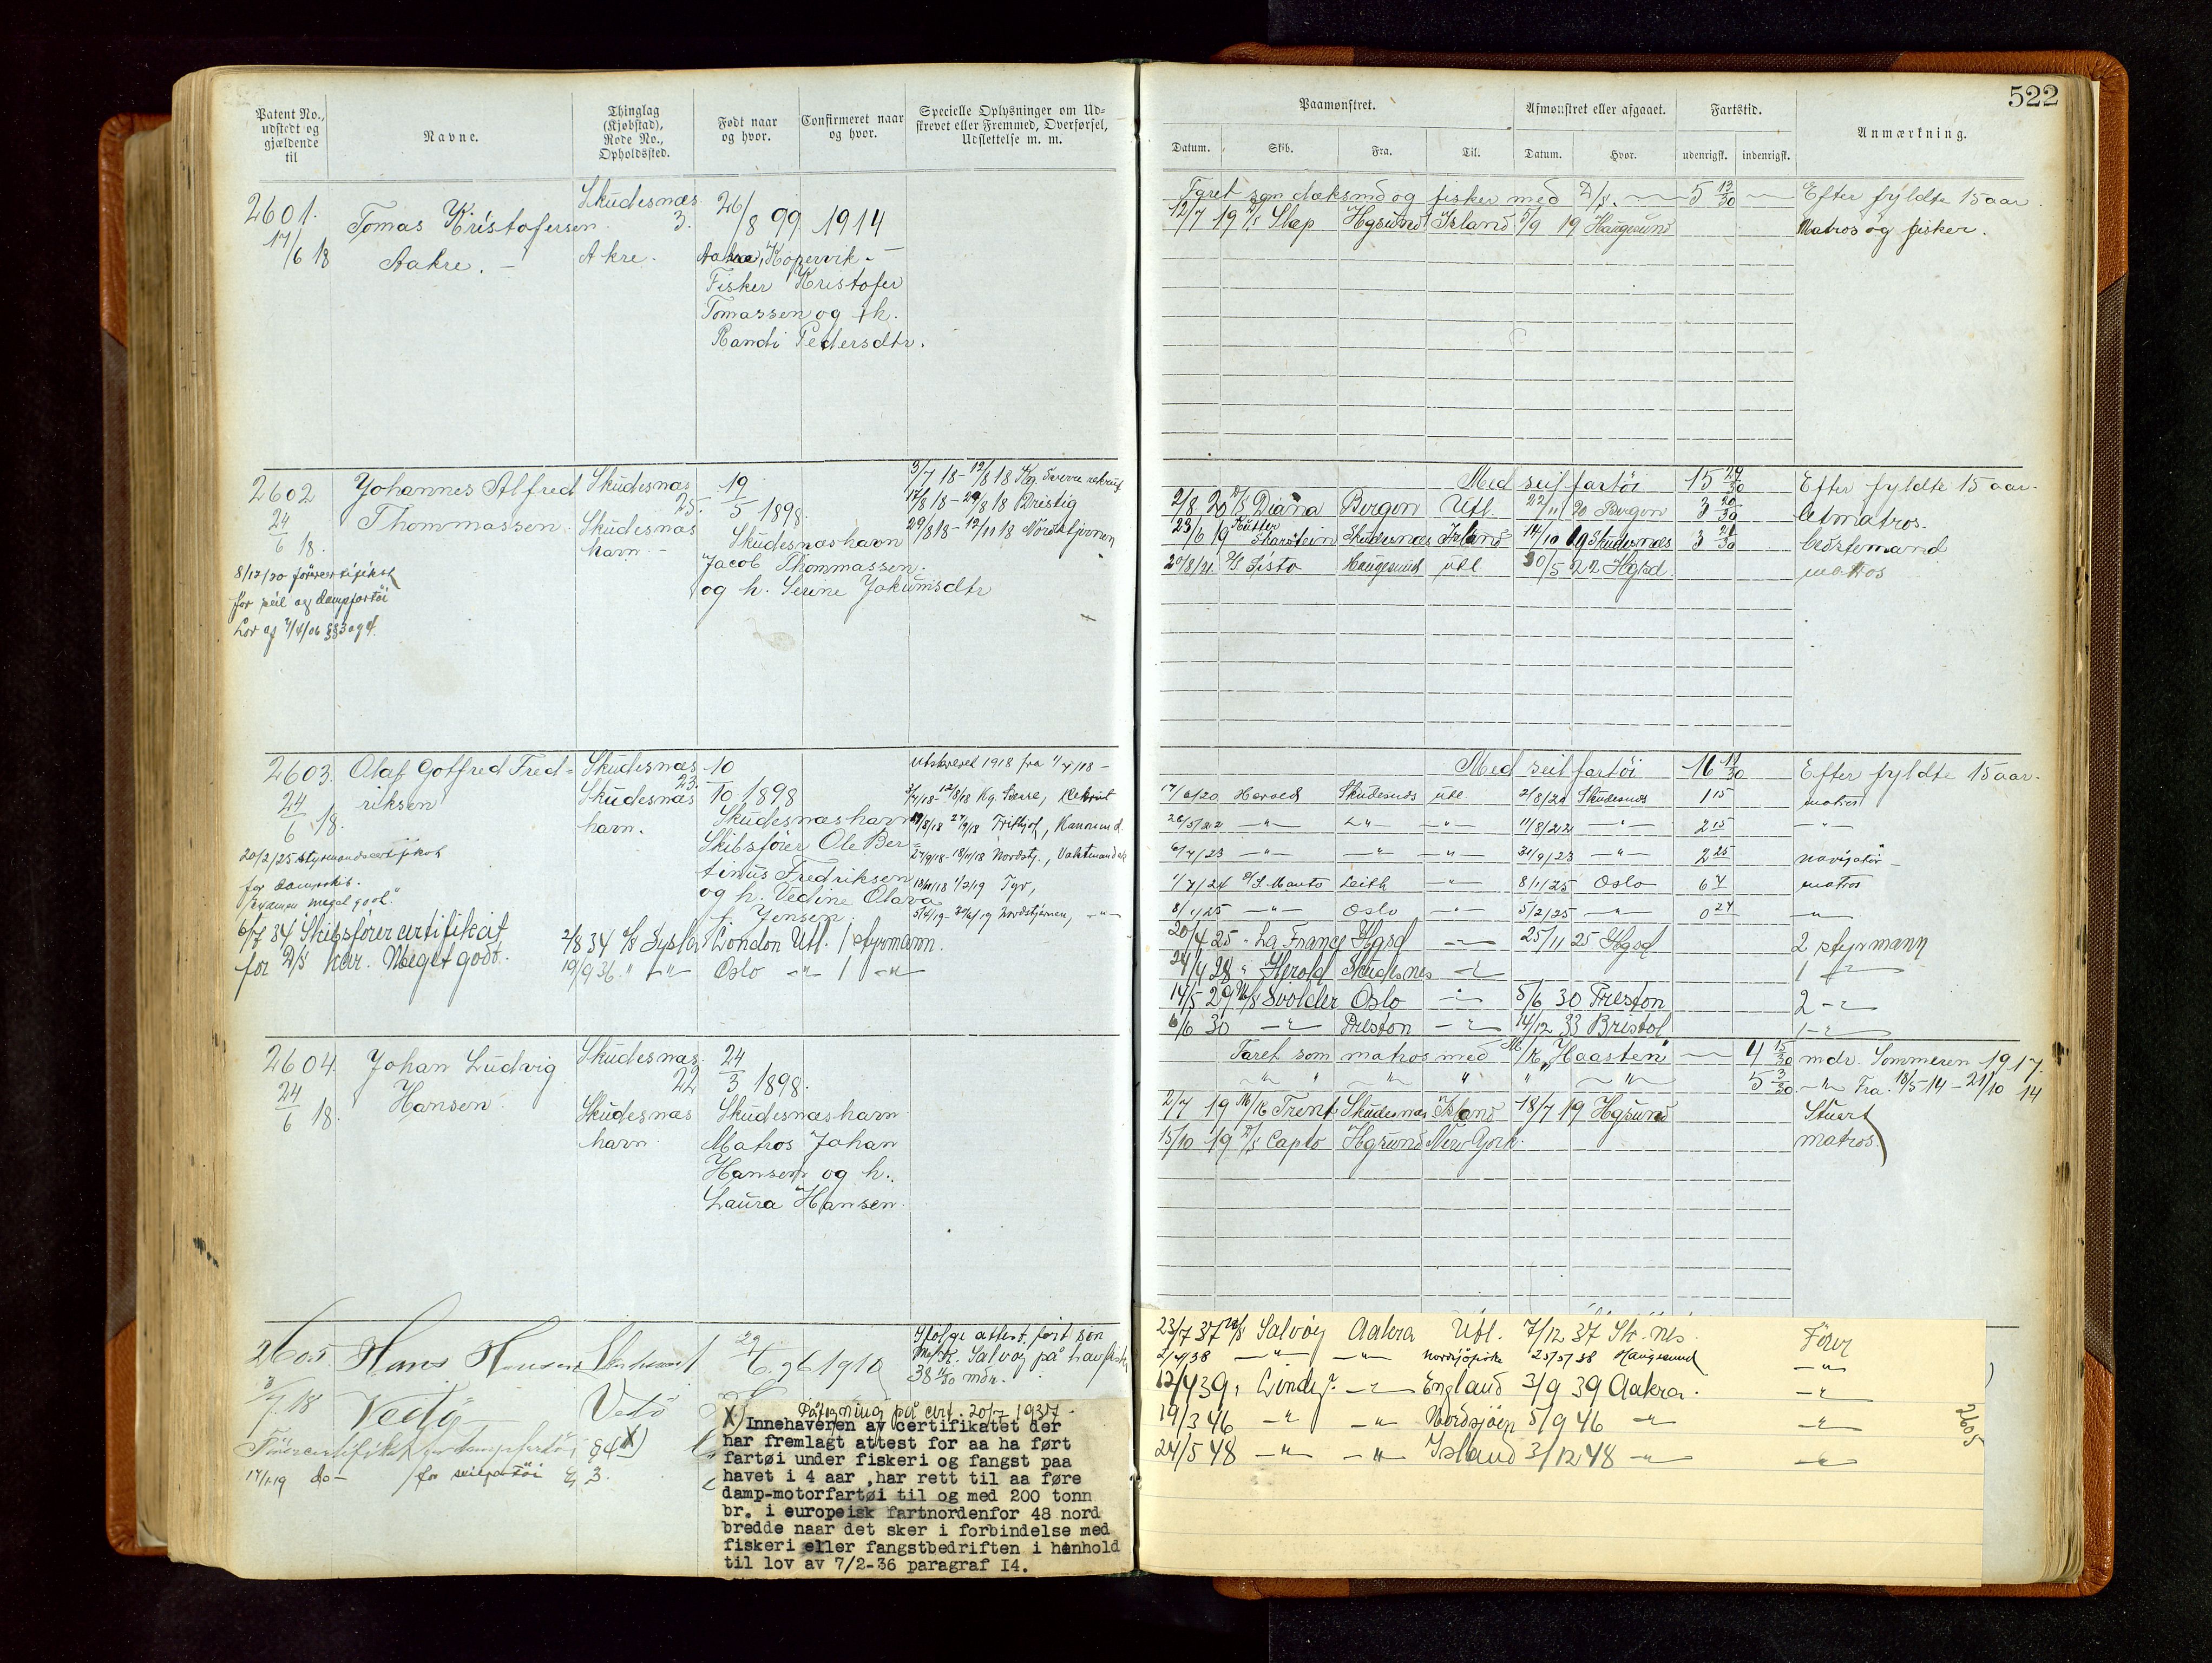 522
Patent No., udstedt og gjældende til
Navne.
Thinglag (Kjøbstad), Rode No., Opholdssted.
Født naar og hvor.
Confirmeret naar og hvor.
Specielle Oplysninger om Udskrevet eller Fremmed, Overførsel, Udslettelse m. m.
Paamønstret.
Afmønstret eller afgaaet.
Fartstid.
Anmærkning.
Datum. Skib. Fra. Til. Datum. Hvor. udenrigsk. indenrigsk.
2601. Tomas Kristofersen Skudesnæs 3. 26/8 99 1914
17/6 18 Aakre. - Akre. Aakre, Kopervik -
Fisker Kristofer
Tomassen og h.
Randi Pedersdtr.
Faret som dæksmd og fisker med D/S. 5 13/30 Efter fyldte 15 aar.
12/7 19 D/S Slæp Hgsund Island 5/9 19 Haugesund Matros og fisker.
2602 Johannes Alfred Skudesnæs 25. 19/5 1898. 3/7 18 - 12/8 18 Kg. Sverre rekrut
24/6 18. Thommassen. Skudesnæs 17/8 18 - 29/8 18 Dristig
havn. - Skudesnæshavn 29/8 18 - 12/11 18 Nordstjernen
8/12/20 förercertifikat Jacob Thommassen.
for seil og dampfartöi og h. Serine Jokumsdtr
Lov af /4/06 §§3 og 4.
Med seilfartöi 15 29/30 Efter fyldte 15 aar.
2/8 20 D/S Diana Bergen Utl. 22/11 20 Bergen 3 20/30 Letmatros.
23/6 19 Kutter Skarstein Skudesnæs Island 14/10 19 Skudesnæs 3 21/30 bedstemand
20/8/21. D/S Sisto Haugesund utl 30/5 22 Hgsd. matros
2603. Olaf Gotfred Fred- Skudesnæs 23. 10/10 1898 Utskrevet 1918 fra 1/7/18 -
24/6 18. riksen Skudesnæs 3/7/18 - 12/8/18 Kg. Sverre, Rekrut
havn. Skudesnæshavn Fridtjof,
Skibsförer Ole Ber- 27/9/18 - 18/11/18 Nordstj.,
20/2/25 styrmandscertifikat tinus Fredriksen 18/11/18 1/2/19 Tyr,
for dampskib. og h. Vedine Olava 5/4/19 - 30/6/19 Nordstjernen, - " -
Examen meget godt. f. Jensen.
6/7 34 Skibsförercertifikat 2/8 34 D/S Sysla London Utl. 1 styrmann.
for D/S kar. Meget godt. 19/9 36 " - " - Oslo - " - 1 - " -
Med seilfartöi 16 11/30 Efter fyldte 15 aar.
17/6/20 Herold Skudesnæs utl. 2/8/20 Skudesnæs 1 15 matros
26/5/22 - " - - " - 11/8/22 - " - 2 15 - " -
6/7/23 - " - - " - - " - 31/9/23 - " - 2 25 navigatør
1/7/24 D/S Manto Leith - " - 8/1/25 Oslo 6 7 matros
8/1/25 - " - Oslo - " - 5/2/25 - " - 0 27 - " -
20/4 25 " La France Hgsd - " - 25/11 25 Hgsd 2 styrmann
24/4 28 " Herold Skudesnes - " - 1 - " -
14/5 29 M/S Svolder Oslo - " - 5/6 30 Preston 2 - " -
6/6 30 - " - Preston - " - 14/12 33 Bristol 1 - " -
2604. Johan Ludvig Skudesnæs. 22 24/3 1898.
24/6 18. Hansen. Skudesnæs Skudesnæshavn
havn. Matros Johan
Hansen og h.
Laura Hansen.
Faret som matros med M/K "Haasten" 4 15/30 mdr. Sommeren 1917.
- " - " - " - " " - " - 5 3/30 - " - Fra 18/5 - 14 - 21/10 14
2/7 19 M/K Trent Skudesnæs Island 18/7 19 Hgsund Stuert
15/10 19 D/S Capto Hgsund New York. matros.
2605 Hans Hansen 1 29/6 96 1910 Ifölge attest, fört som
3/7 18 Vedö Vedö M/K. Salvöy på havfiske
38 11/30 mdr.
Förercertifikat for dampfartöi §4 X)
17/1 19 do - for seilfartöi § 3.
Påtegning på cert. 20/7 1937 -
X) Innehaveren av certifikatet der
har fremlagt attest for aa ha ført
fartøi under fiskeri og fangst paa
havet i 4 aar ,har rett til aa føre
damp-motorfartøi til og med 200 tonn
br. i europeisk fartnordenfor 48 nord
bredde naar det sker i forbindelse med
fiskeri eller fangstbedriften i henhold
til lov av 7/2-36 paragraf I4.
23/7 37 M/S Salvöy Aakra Utl. 7/12 37 Sk. nes. Förer
2/4/38 - " - - " - Nordsjöfiske 25/5/38 Haugesund - " -
12/4 39 " - " - England 3/9 39 Aakra. - " -
19/3 46 - " - - " - Nordsjöen 5/9 46 - " - - " -
24/5 48 - " - - " - Island 3/12 48 - " - - " -
2605